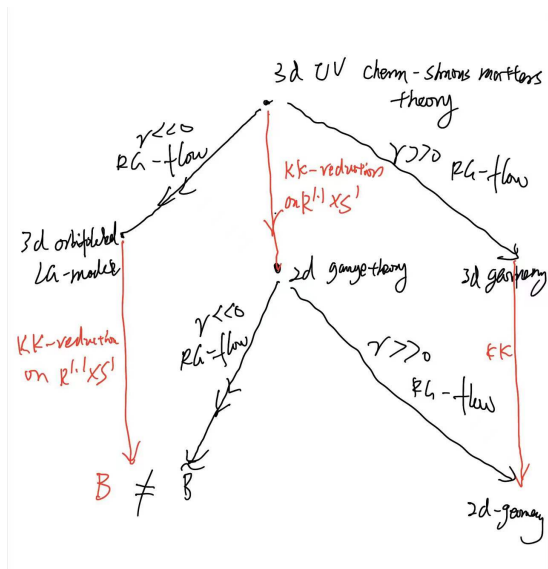 3d UV chern-simons matters
theory
r<<0
RG-flow
KK-reduction
on R^{1,1}×S^1
r>>0
RG-flow
3d orbifolded
LG-model
2d gauge theory
3d geometry
KK-reduction
on R^{1,1}×S^1
r<<0
RG-flow
r>>0
RG-flow
KK
B ≠ B
2d-geometry